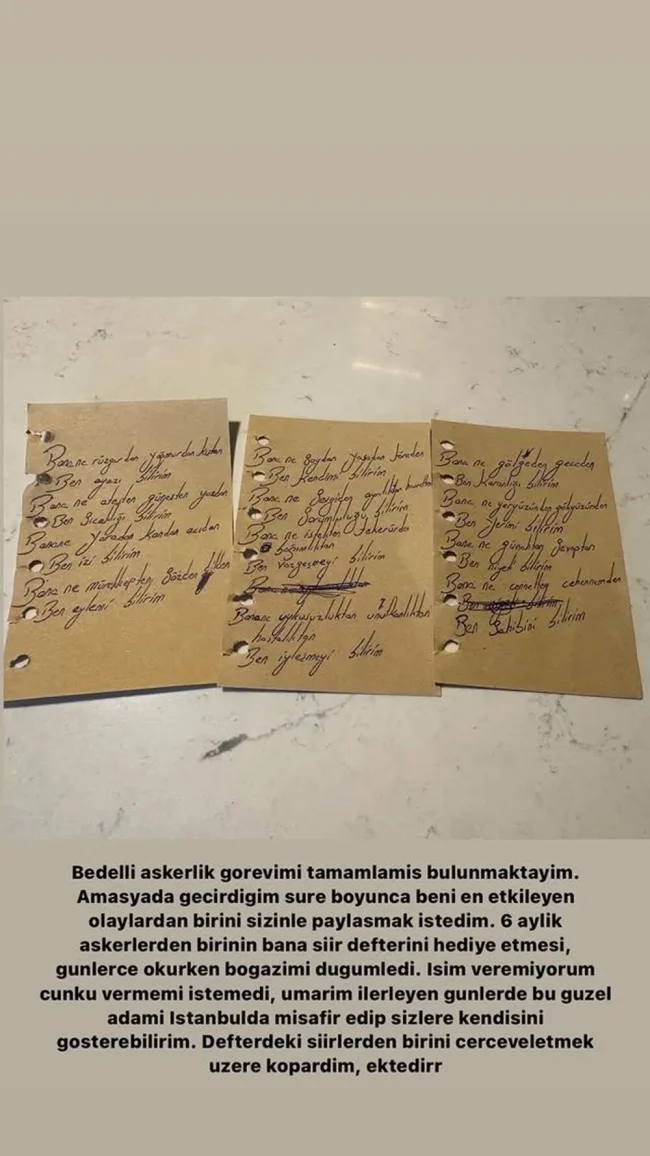 Bana ne rüzgardan yağmurdan kıştan
Ben ayazı bilirim
Bana ne ateşten güneşten yazdan
Ben Sıcaklığı bilirim
Banane Yaradan kandan acıdan
Ben izi bilirim
Bana ne mürekkepten Sözden
Ben eylemi bilirim
Bana ne Soydan yasadan töreden
Ben Kendimi bilirim
Bana ne Sevgiden ayrılıktan
Ben Sorumluluğu bilirim
Bana ne istekten Tekerürden
bağımlıktan
Ben vazgeçmeyi bilirim
Banane uykusuzluktan unutkanlıktan
hastalıktan
Ben iyleşmeyi bilirim
Bana ne gölgeden geceden
Ben Karanlığı bilirim
Bana ne yeryüzünden gökyüzünden
Ben Yerimi bilirim
Bana ne günahtan Sevaptan
Ben niyeti bilirim
Bana ne cennetten cehennemden
Ben Sahibini bilirim
Bedelli askerlik gorevimi tamamlamis bulunmaktayim.
Amasyada gecirdigim sure boyunca beni en etkileyen
olaylardan birini sizinle paylasmak istedim. 6 aylik
askerlerden birinin bana siir defterini hediye etmesi,
gunlerce okurken bogazimi dugumledi. Isim veremiyorum
cunku vermemi istemedi, umarim ilerleyen gunlerde bu guzel
adami Istanbulda misafir edip sizlere kendisini
gosterebilirim. Defterdeki siirlerden birini cerceveletmek
uzere kopardim, ektedirr